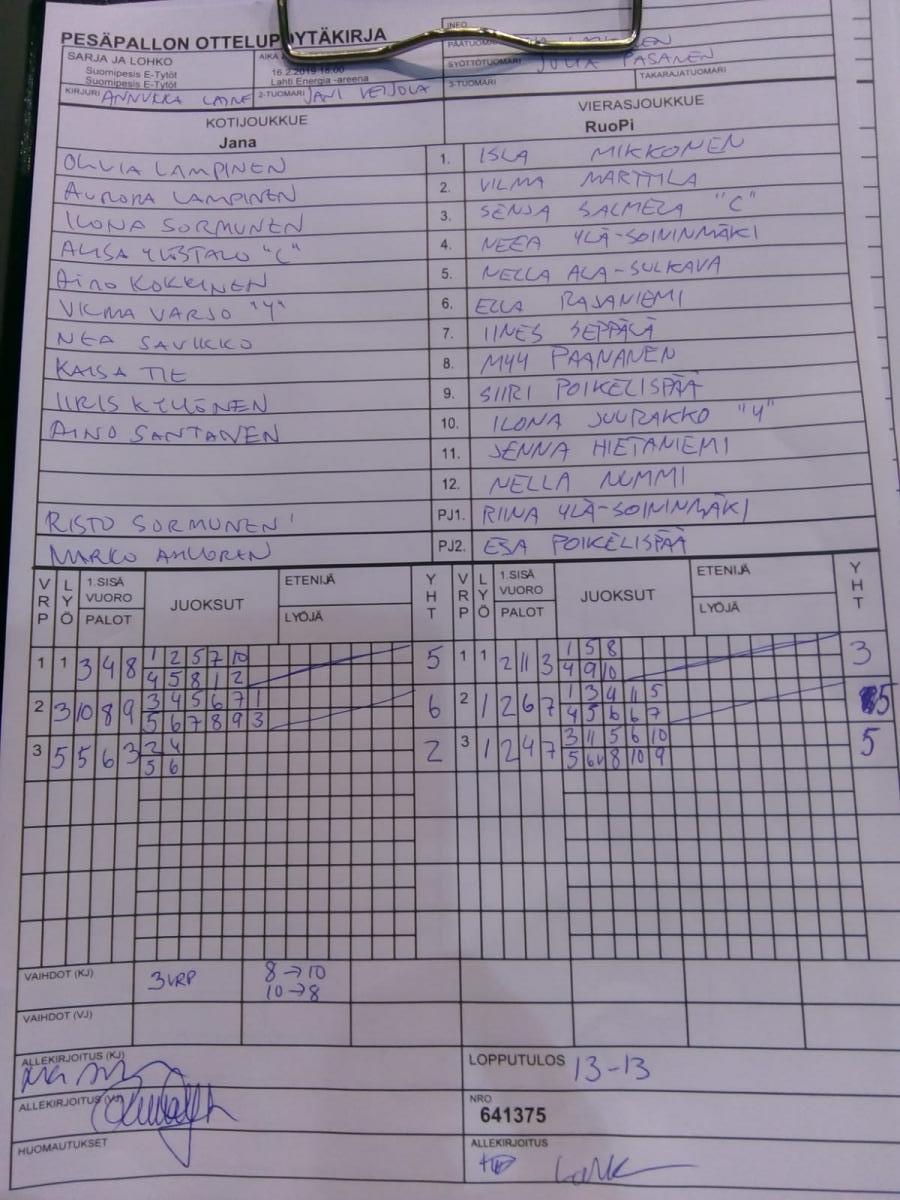 PESÄPALLON OTTELUPÖYTÄKIRJA
INFO
SARJA JA LOHKO
AIKA
Suomipesis E-Tytöt
Suomipesis E-Tytöt
16.2.2019 18:00
Lahti Energia -areena
SYÖTTÖTUOMARI JULIA PASANEN
KIRJURI ANNUKKA LAINE 2-TUOMARI JANI VEIJOLA 3-TUOMARI TAKARAJATUOMARI
KOTIJOUKKUE VIERASJOUKKUE
Jana RuoPi
OLIVIA LAMPINEN 1. ISLA MIKKONEN
AURORA LAMPINEN 2. VILMA MARTTILA
ILONA SORMUNEN 3. SENJA SALMELA "C"
ALISA YLÖSTALO "C" 4. NEEA YLÄ-SOININMÄKI
AINO KOKKINEN 5. NELLA ALA-SULKAVA
VILMA VARJO "Y" 6. ELLA RAJANIEMI
NEA SAVIKKO 7. IINES SEPPÄLÄ
KAISA TIE 8. MYY PAANANEN
IIRIS KYLLÖNEN 9. SIIRI POIKELISPÄÄ
AINO SANTANEN 10. ILONA JUURAKKO "Y"
11. JENNA HIETANIEMI
12. NELLA NUMMI
RISTO SORMUNEN PJ1. RIINA YLÄ-SOININMÄKI
MARKO PJ2. ESA POIKELISPÄÄ
VRP LYÖ 1.SISÄ VUORO PALOT JUOKSUT ETENIJÄ LYÖJÄ YHT VRP LYÖ 1.SISÄ VUORO PALOT JUOKSUT ETENIJÄ LYÖJÄ YHT
1 1 3 4 8 1 2 5 7 10 5 1 1 2 11 3 1 5 8 3
4 5 8 1 2 4 9 10
2 3 10 8 9 3 4 5 6 7 1 6 2 1 2 6 7 1 3 4 11 5 5
5 6 7 8 9 3 4 5 6 6 7
3 5 5 6 3 2 4 2 3 1 2 4 7 3 11 5 6 10 5
5 6 5 6V 8 10 9
VAIHDOT (KJ) 3VRP 8→10
10→8
VAIHDOT (VJ)
ALLEKIRJOITUS (KJ) LOPPUTULOS 13-13
ALLEKIRJOITUS (VJ) NRO
641375
HUOMAUTUKSET ALLEKIRJOITUS